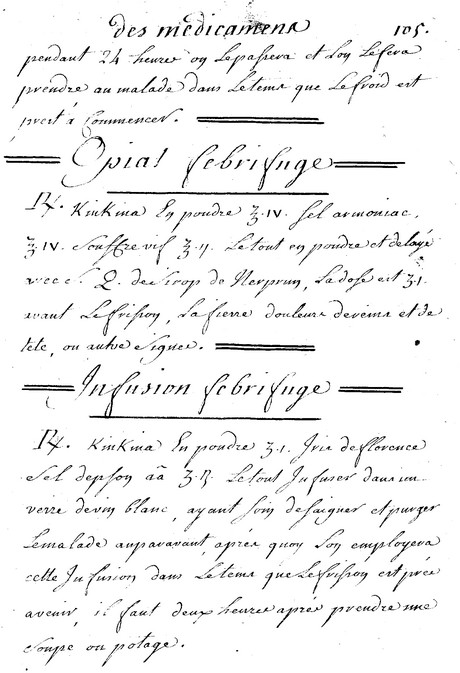 des medicamens 105.
pendant 24 heures on Lepassera et Lon Lefera
prendre au malade dans Letems que Lefroid est
prest à Commencer.
Opiat febrifuge
℞. Kinkina En poudre ʒ.IV. Sel armoniac.
ʒ.IV. Souffre vif ʒ.ij. Letout en poudre et delayé
avec S. Q. de Sirop de Nerprun, La dose est ʒ.j.
avant Lefrisson, La fievre douleurs de reins et de
tete, ou autre Signes.
Infusion febrifuge
℞. Kinkina En poudre ʒ.j. Iris deflorence
Sel depson āā ʒ.ß. Letout Infuser dans un
verre de vin blanc, ayant Soin de Saigner et purger
Lemalade auparavant, aprés quoy Lon employera
cette Infusion dans Letems que Lefrisson est prés
avenir, il faut deux heures apres prendre une
Soupe ou potage.